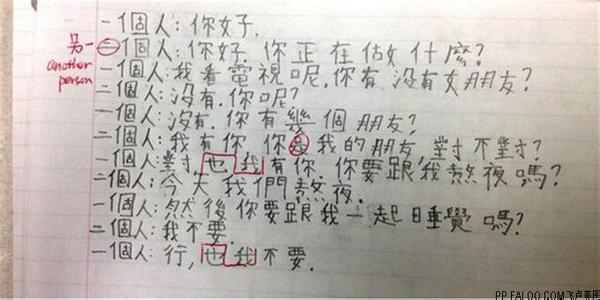 一個人：你好.
另一 二個人：你好.你正在做什麼？
another person
一個人：我看電視呢，你有沒有女朋友？
二個人：沒有.你呢？
一個人：沒有.你有幾個朋友？
二個人：我有你，你是我的朋友，對不對？
一個人：對，也我有你.你要跟我熬夜嗎？
二個人：今天我們熬夜.
一個人：然後你要跟我一起睡覺嗎？
二個人：我不要.
一個人：行，也我不要.
PP.FALOO.COM飞卢美图